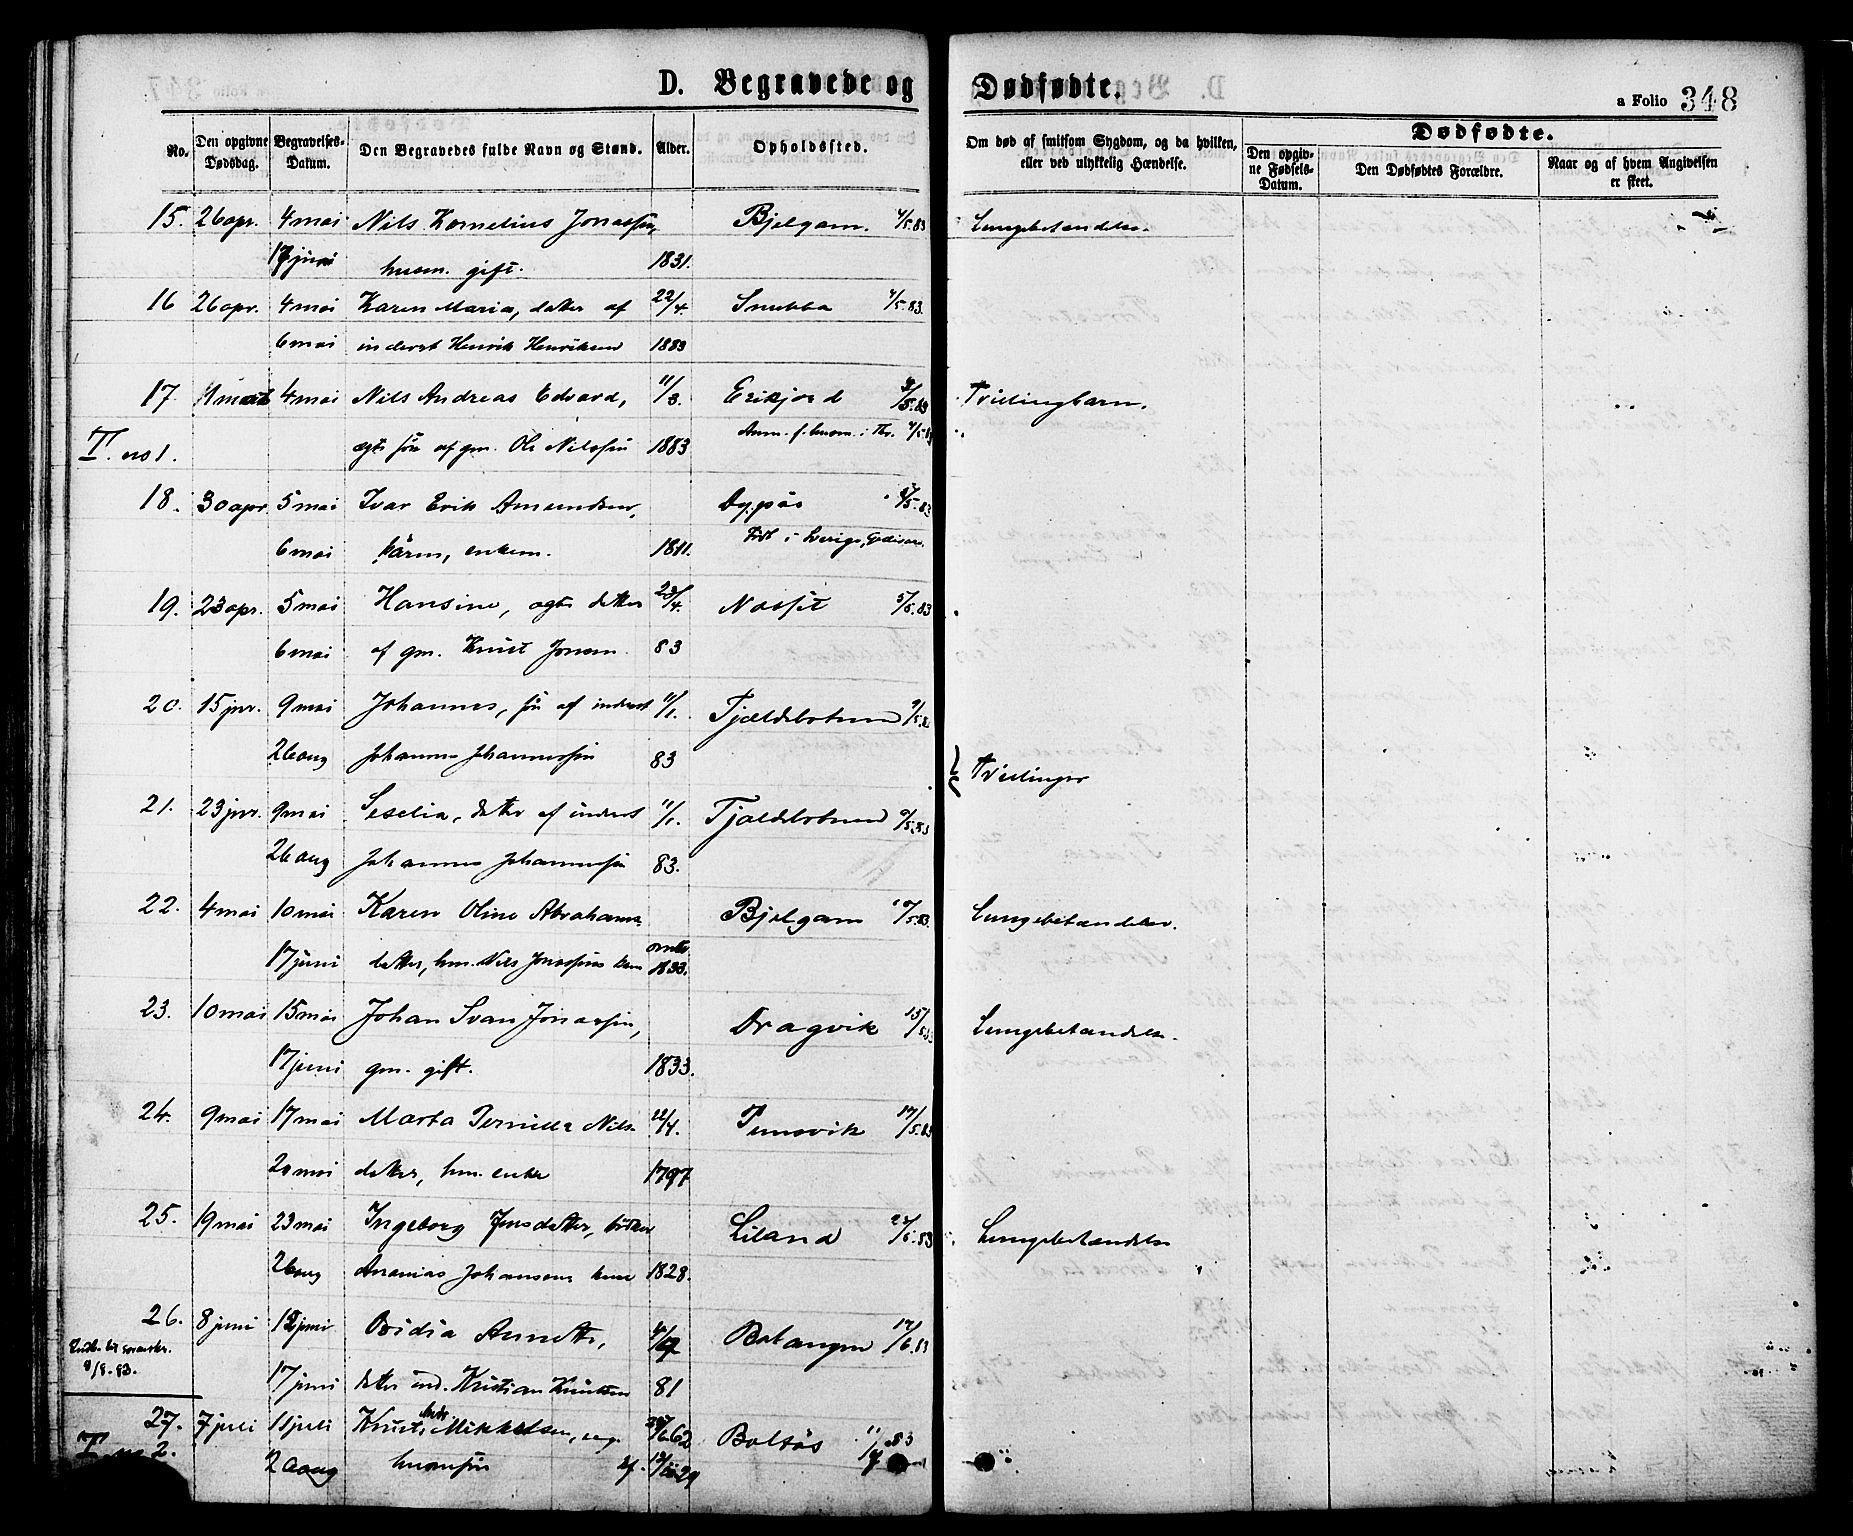 D. Begravede og Dødfødte.
a Folio 348
No.
Den opgivne Dødsdag.
Begravelses-Datum.
Den Begravedes fulde Navn og Stand.
Alder.
Opholdssted.
Om død af smitsom Sygdom, og da hvilken, eller ved ulykkelig Hændelse.
Dødfødte.
Den opgivne Fødsels-Datum.
Den Dødfødtes Forældre.
Naar og af hvem Angivelsen er skeet.
15. 26 apr. 4 mai Nils Kornelius Jonassen, Bjelgam. 4/5.83 Lungebetændelse.
17 juni husm. gift. 1831.
16 26 apr. 4 mai Karen Maria, datter af 22/4. Snubba 4/5.83.
6 mai inderst Henrik Henriksen 1883
17. 4 mai Nils Andreas Edvard, 11/3. Erikjord Tvillingbarn.
T. no 1. ægte søn af gm. Ole Nilssen 1883
18. 30 apr. 5 mai Ivar Erik Amundsen, Dypås
6 mai enkem. 1811. Født i Sverige,
19. 23 apr. 5 mai Hansine, ægte datter 23/4. 5/5.83
6 mai af gm. Knut Jonsen 83
20. 15 jnr. 9 mai Johannes, søn af inderst 11/1. Tjældebotnen
26 aug Johannes Johannessen 83
Tvillinger
21. 23 jnr. 9 mai Seselia, datter af inderst 11/1. Tjældebotnen
26 aug Johannes Johannessen 83.
22. 4 mai 10 mai Karen Oline Abrahams- Bjelgam 10/5.83. Lungebetændelse.
17 juni datter, hm. Nils Jonassens kone omtr. 1833.
23. 10 mai 15 mai Johan Svan Jonassen, Dragvik 15/5.83 Lungebetændelse.
17 juni gm. gift. 1833.
24. 9 mai 17 mai Marta Pernilla Nils- Punsvik 17/5.83
20 mai datter, hm. enke 1797
25. 19 mai 23 mai Ingeborg Jensdatter, Liland Lungebetændelse
26 aug Ananias Johansens kone 1828.
26. 8 juni 12 juni Ovidia Annette, Botangen 12/6.83
8/8.83.
17 juni datter ind. Kristian Knutsen 81
27. 7 juli 11 juli Knut Mikkelsen, Boltås
T. no 2. 20 aug